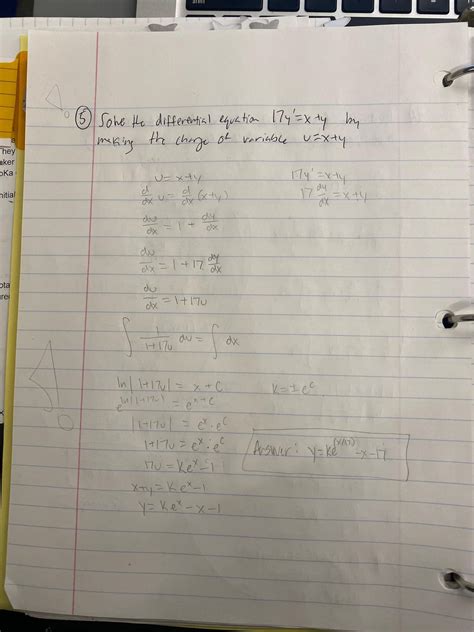 ⑤ Solve the differential equation 17y'=x+y by
making the change of variable u=x+y
u=x+y
17y'=x+y
d/dx u = d/dx (x+y)
17 dy/dx = x+y
du/dx = 1 + dy/dx
du/dx = 1+17 dy/dx
du/dx = 1+17u
∫ 1/(1+17u) du = ∫ dx
ln|1+17u| = x+C
K=±e^C
e^(ln|1+17u|) = e^(x+C)
|1+17u| = e^x·e^C
1+17u = e^x·e^C
Answer: y=Ke^(x/17)-x-17
17u = Ke^x-1
x+y = Ke^x-1
y = Ke^x-x-1
They
ker
oKa
nitial